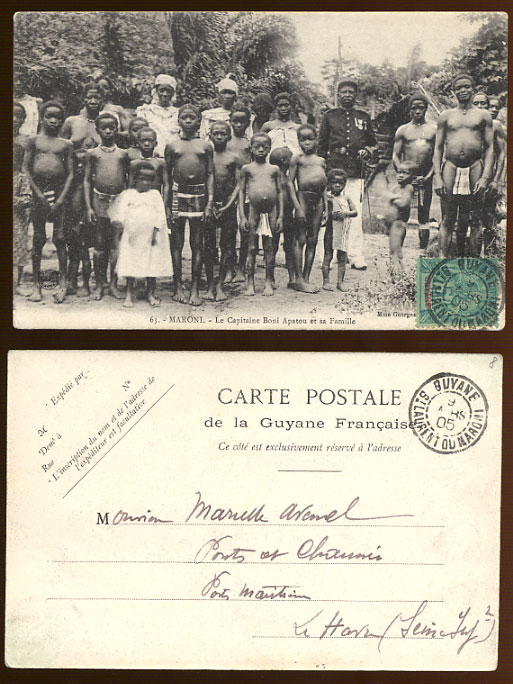 63. - MARONI. - Le Capitaine Boni Apatou et sa Famille
GUYANE
ST LAURENT DU MARONI
Expédié par
N°
M
Dem<sup>t</sup> à
Rue
L'inscription du nom et de l'adresse de
l'expéditeur est facultative
CARTE POSTALE
de la Guyane Française
Ce côté est exclusivement réservé à l'adresse
8
GUYANE
9
05
ST LAURENT DU MARONI
Monsieur Marcelle
Ponts et Chaussées
Ports Maritimes
Le Havre (Seine Inf<sup>re</sup>)